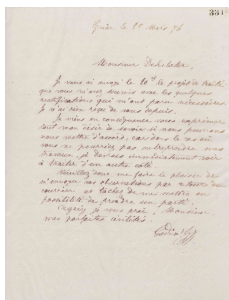 334
Guise le 28 Mars 76
Monsieur Deholain,
Je vous ai envoyé le 20 ct le projet de traité
que vous m'avez soumis avec les quelques
modifications qui m'ont paru nécessaires
Je n'ai rien reçu de vous depuis.
Je viens en conséquence vous exprimer
tout mon désir de savoir si nous pouvons
nous mettre d'accord, car dans le cas où
vous ne pourriez pas entreprendre mes
travaux je devrais immédiatement voir
à traiter d'un autre côté.
Veuillez donc me faire le plaisir de
m'envoyer vos observations par retour du
courrier et tâcher de me mettre en
possibilité de prendre un parti.
Agréez je vous prie, Monsieur
mes parfaites civilités
Godin